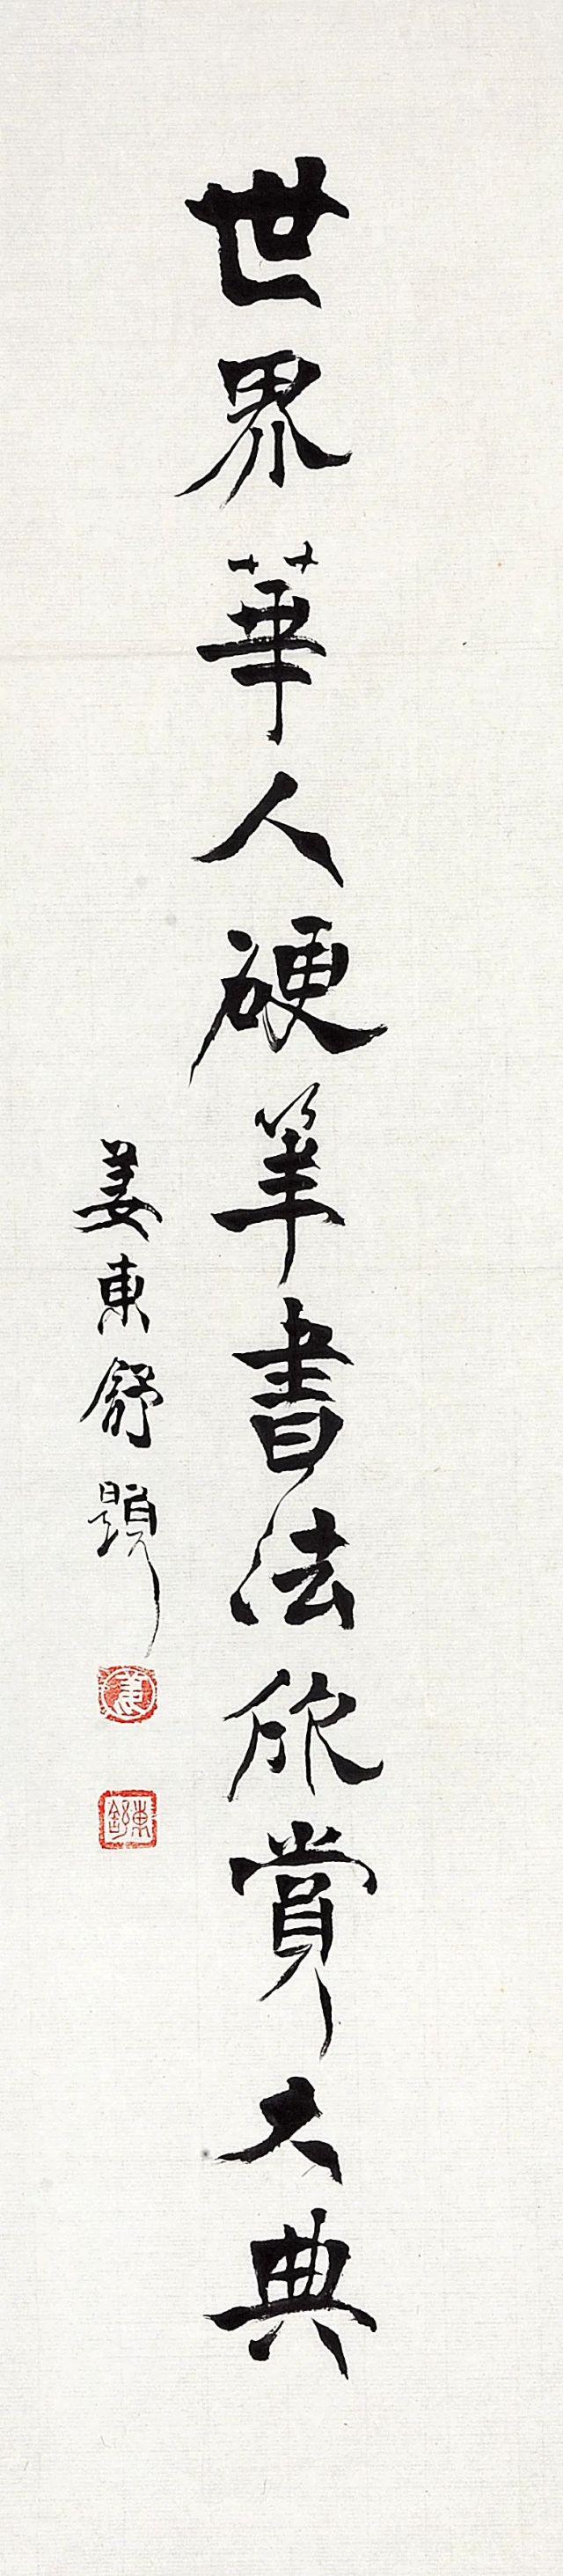 世界華人硬筆書法欣賞大典
姜東舒題
姜
東舒